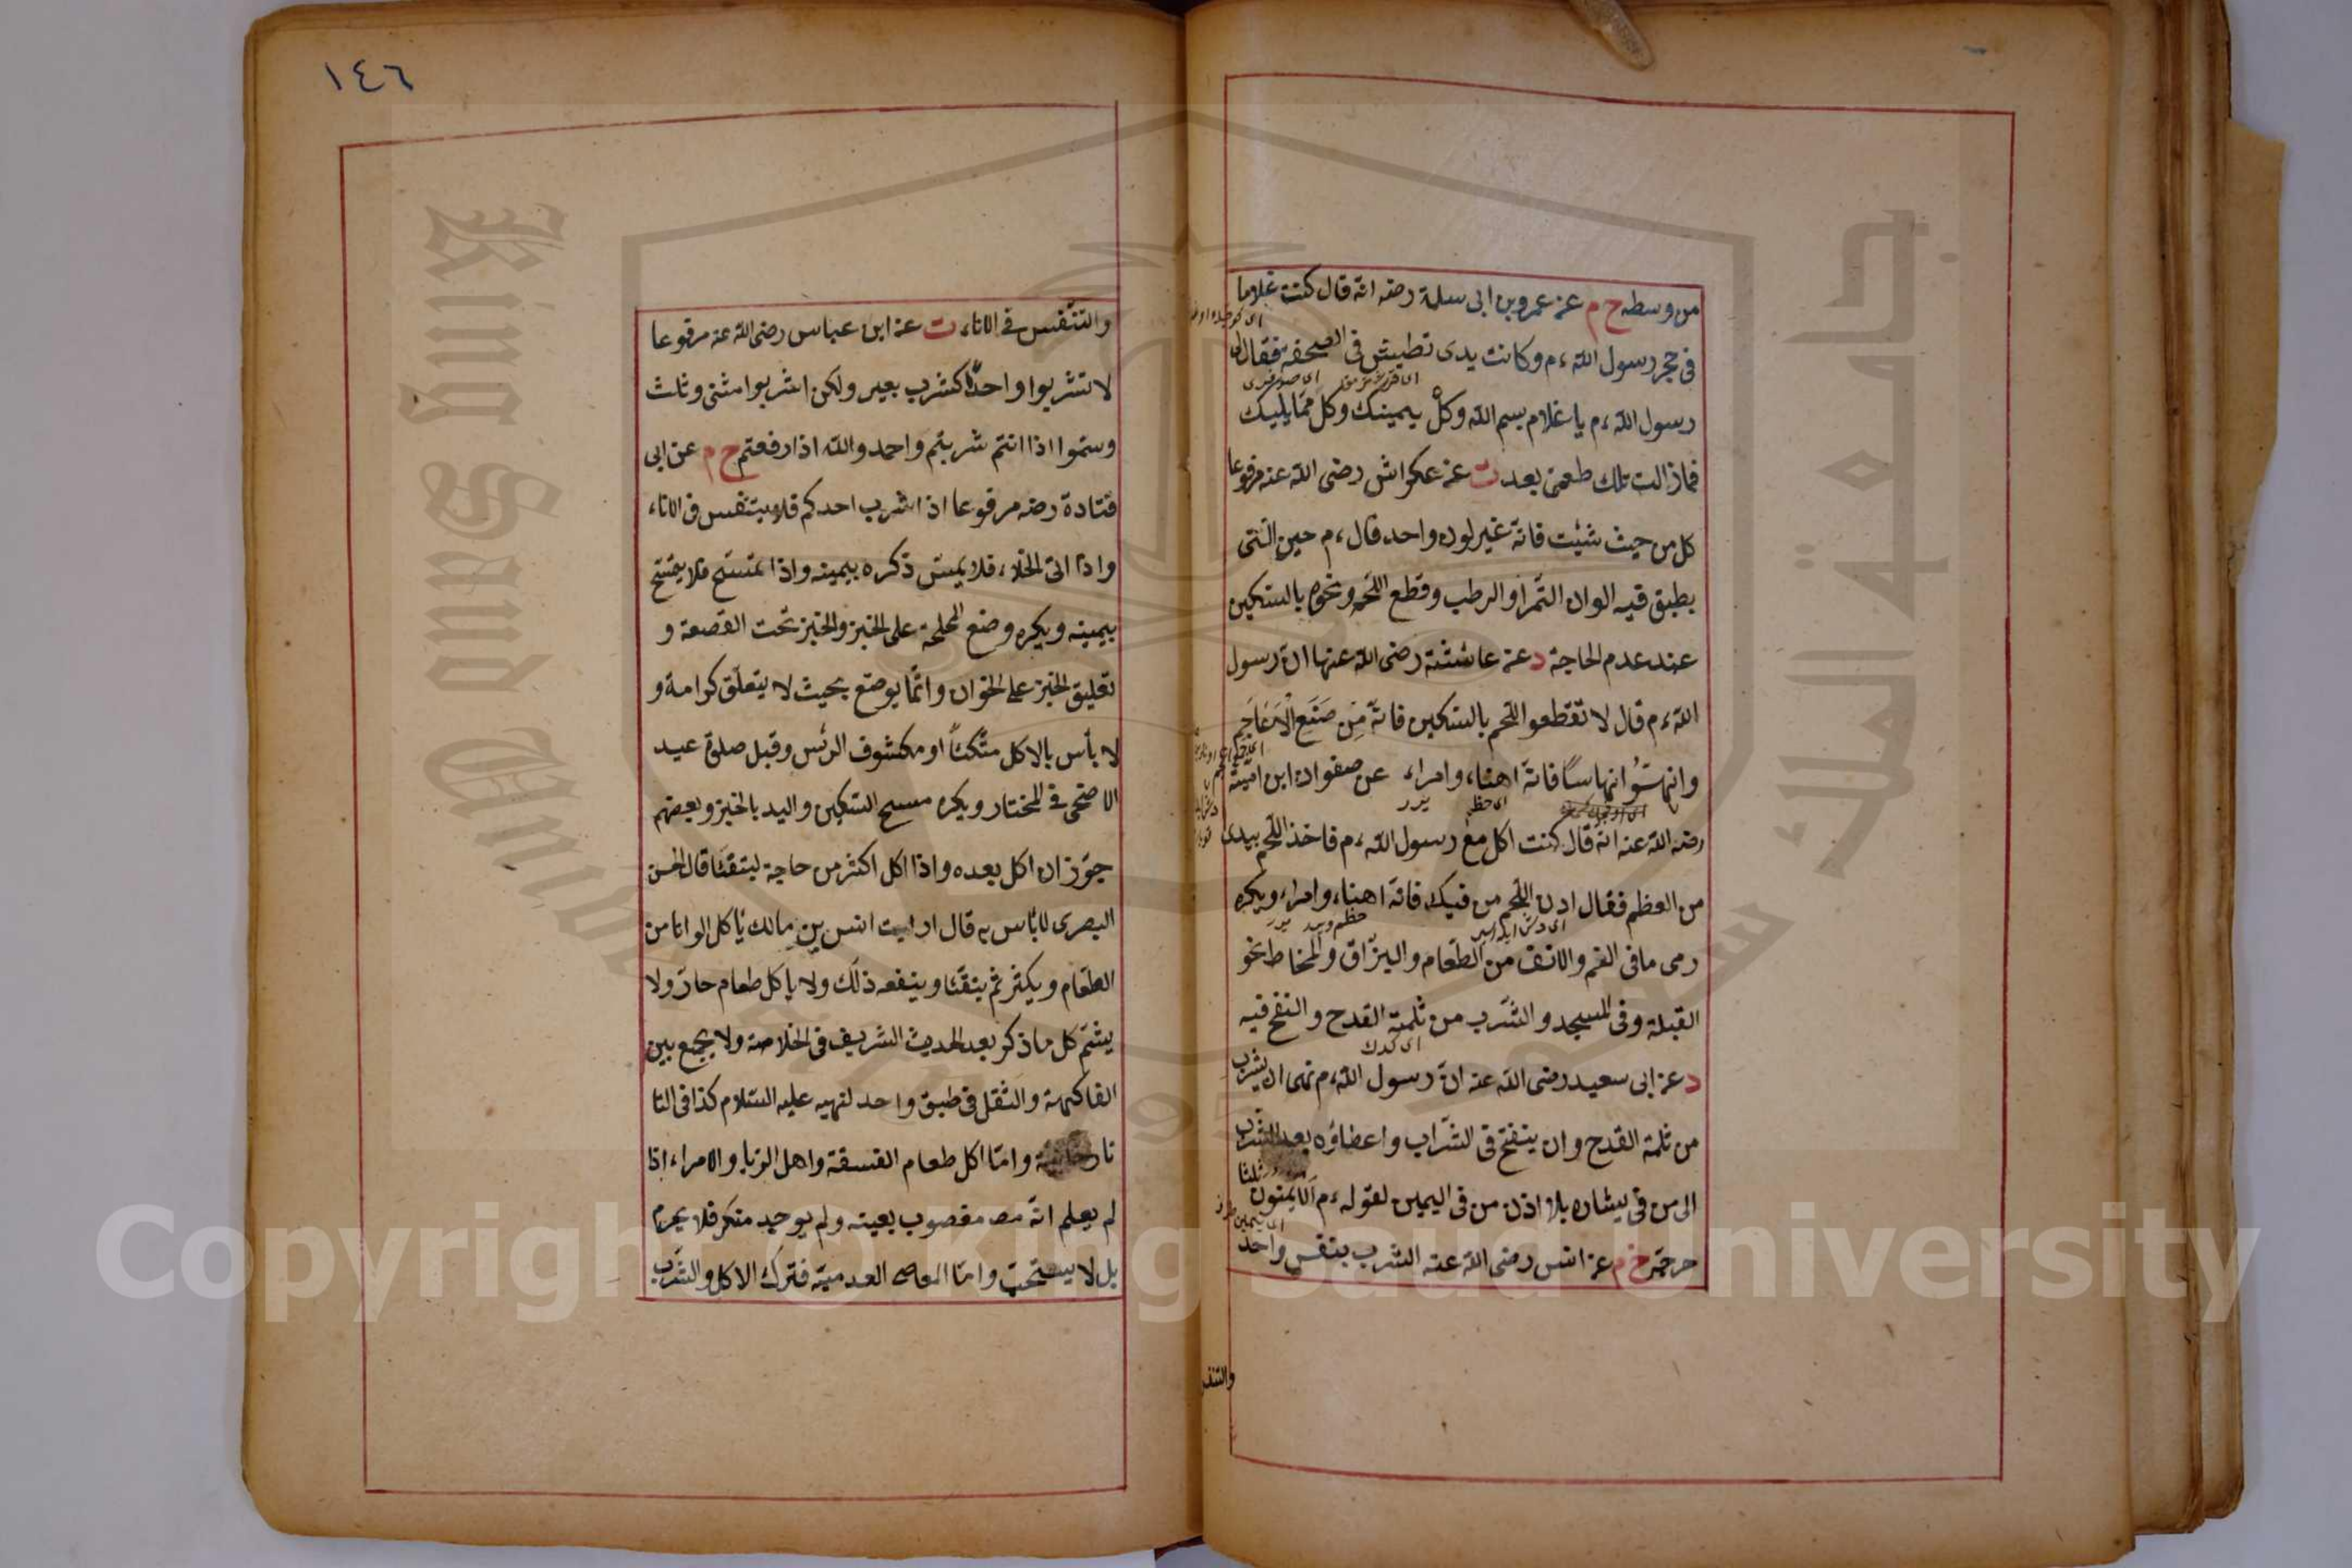 من وسطه خ م عن عمرو بن ابى سلمة رضه انه قال كنت غلاما
فى حجر رسول الله ءم وكانت يدى تطيش فى الصحفة فقال لى
رسول الله ءم يا غلام بسم الله وكل بيمينك وكل مما يليك
فمازالت تلك طعمتى بعد ت عن عكراش رضى الله عنه مرفوعا
كل من حيث شئت فانه غير لون واحد قال ءم حين اتى
بطبق فيه الوان التمر او الرطب وقطع اللحم ونحوه بالسكين
عند عدم الحاجة د عن عائشة رضى الله عنها ان رسول
الله ءم قال لا تقطعوا اللحم بالسكين فانه من صنع الاعاجم
وانهسوا انهاسا فانه اهناء وامراء عن صفوان ابن امية
رضه الله عنه انه قال كنت اكل مع رسول الله ءم فاخذ اللحم بيدى
من العظم فقال ادن اللحم من فيك فانه اهناء وامراء ويكره
رمى ما فى الفم والانف من الطعام والبزاق والمخاط نحو
القبلة وفى المسجد والشرب من ثلمة القدح والنفخ فيه
د عن ابى سعيد رضى الله عنه ان رسول الله ءم نهى ان يشرب
من ثلمة القدح وان ينفخ فى الشراب واعطاؤه بعد الشرب
الى من فى يساره بلا اذن من فى اليمين لقوله ءم الايمنون ثلثا
خرجه خ م عن انس رضى الله عنه الشرب بنفس واحد
والتنفس
١٤٦
والتنفس فى الاناء ت عن ابن عباس رضى الله عنه مرفوعا
لا تشربوا واحدا كشرب بعير ولكن اشربوا مثنى وثلث
وسموا اذا انتم شربتم واحمدوالله اذا رفعتم خ م عن ابى
قتادة رضه مرفوعا اذا شرب احدكم فلا يتنفس فى الاناء
واذا اتى الخلاء فلا يمس ذكره بيمينه واذا تمسح فلا يتمسح
بيمينه ويكره وضع المملحة على الخبز والخبز تحت القصعة و
تعليق الخبز على الخوان وانما يوضع بحيث لا يتعلق كرامة و
لا بأس بالاكل متكئا او مكشوف الرئس وقبل صلوة عيد
الاضحى فى المختار ويكره مسح السكين واليد بالخبز وبعضهم
جوز ان اكل بعده واذا اكل اكثر من حاجة ليتقئا قال الحسن
البصرى لا بأس به قال ارايت انس بن مالك يأكل الوانا من
الطعام ويكثر ثم يتقئا وينفعه ذلك ولا يأكل طعام حار ولا
يشم كل ما ذكر بعد الحديث الشريف فى الخلاصة ولا يجمع بين
الفاكهة والثفل فى طبق واحد لنهيه عليه السلام كذا فى التا
تارخانية واما اكل طعام الفسقة واهل الربا والامراء اذا
لم يعلم انه مغصوب بعينه ولم يوجد منكر فلا يحرم
بل لا يستحب واما المعاصى العدمية فترك الاكل والشرب
Copyright © King Saud University